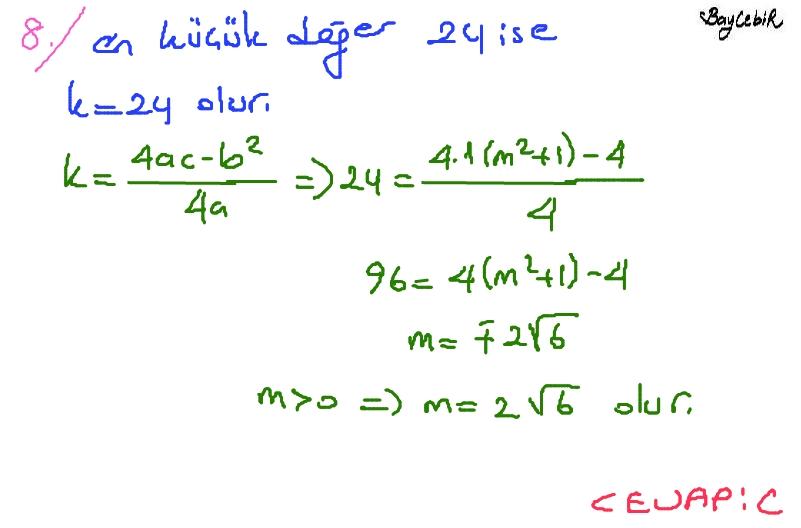 BayCebiR
8./ en küçük değer 24 ise
k=24 olur.
k = \frac{4ac-b^2}{4a} => 24 = \frac{4.1(m^2+1)-4}{4}
96 = 4(m^2+1)-4
m = ∓2√6
m>0 => m = 2√6 olur.
CEVAP:C